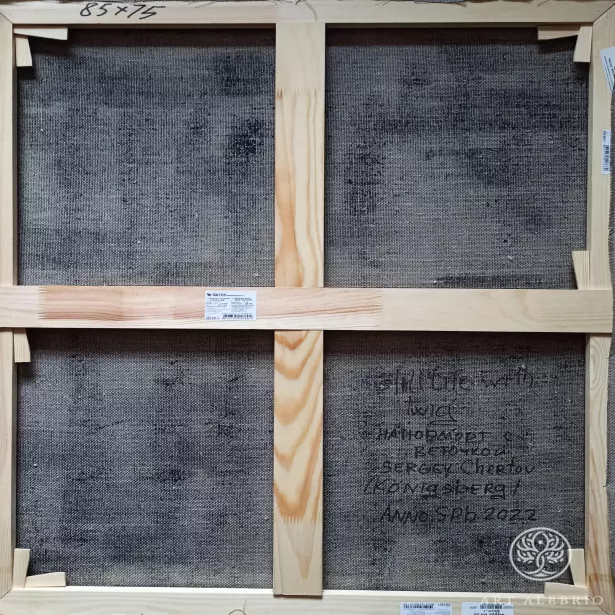 85x75
still life with
twig
натюрморт с
веточкой
SERGEY Chertov
(Königsberg)
ANNO SPb 2022
ART ALEBRIO